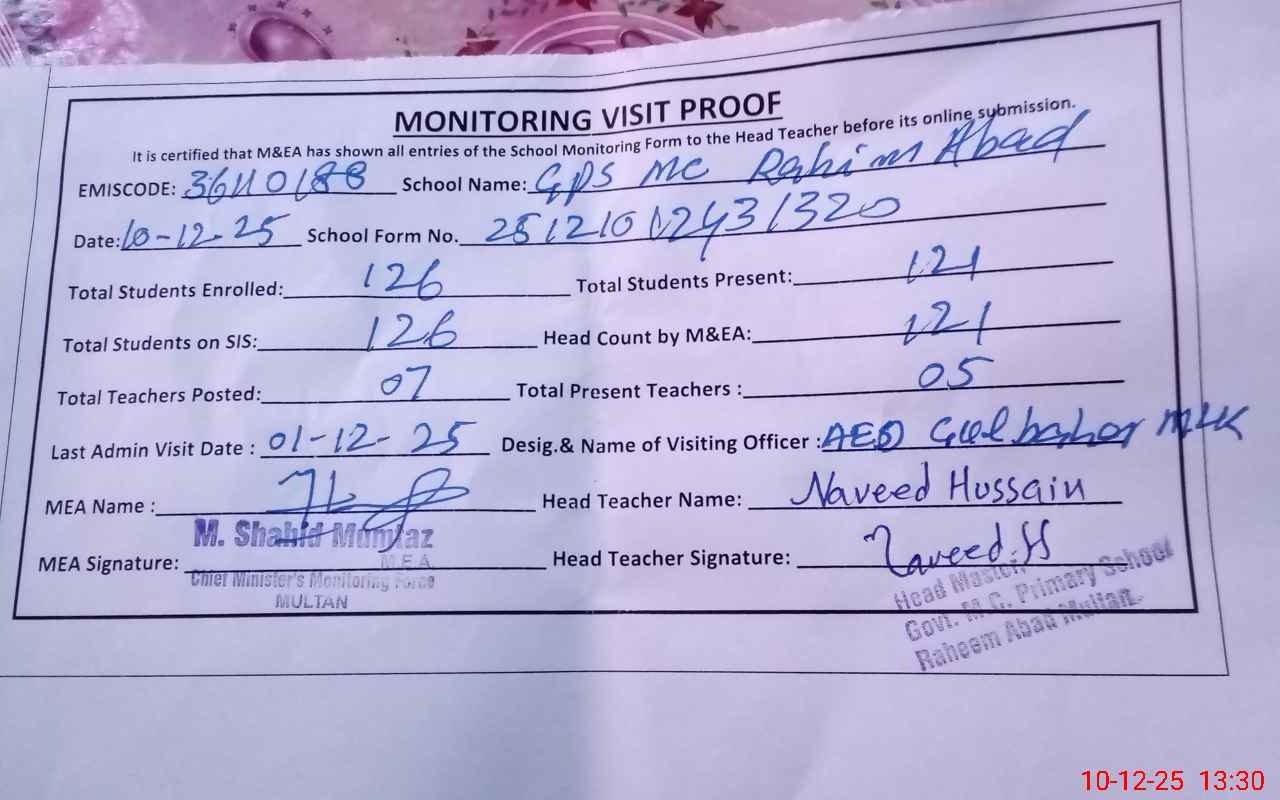 MONITORING VISIT PROOF
It is certified that M&EA has shown all entries of the School Monitoring Form to the Head Teacher before its online submission.
EMISCODE: 36110188 School Name: GPS MC Rahim Abad
Date: 10-12-25 School Form No. 25121012431320
Total Students Enrolled: 126 Total Students Present: 121
Total Students on SIS: 126 Head Count by M&EA: 121
Total Teachers Posted: 07 Total Present Teachers : 05
Last Admin Visit Date : 01-12-25 Desig.& Name of Visiting Officer : AEO Gul
MEA Name : Head Teacher Name: Naveed Hussain
M. Shahid Mumtaz
MEA Signature: Head Teacher Signature: Naveed.H
M.E.A.
Chief Minister's Monitoring Force
MULTAN
Head Master,
Govt. M.C. Primary School
Raheem Abad Multan.
10-12-25 13:30